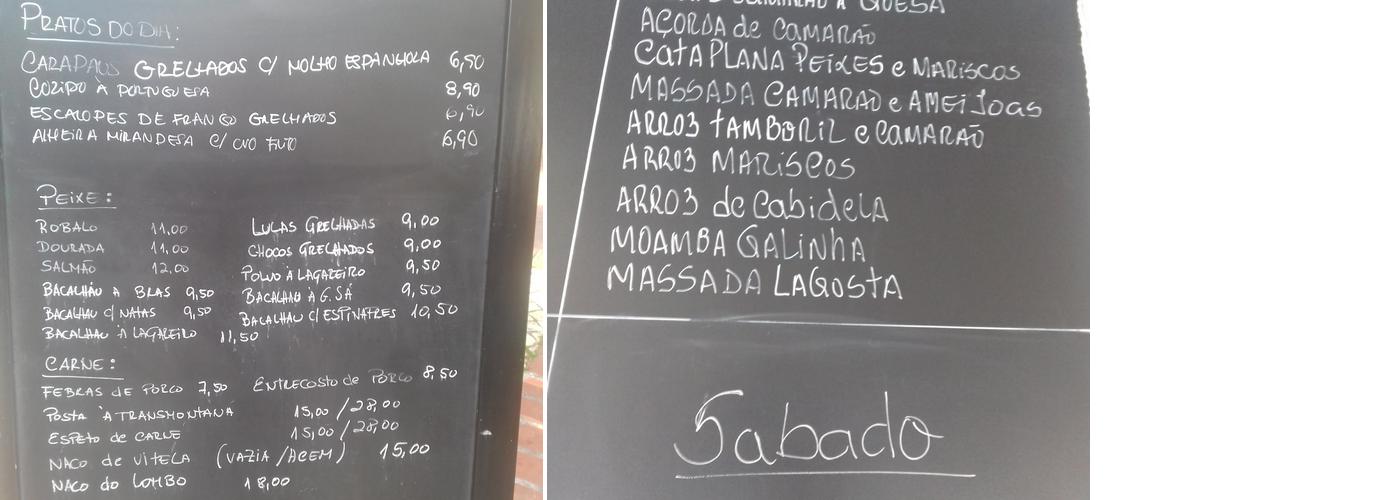 PRATOS DO DIA:
CARAPAUS GRELHADOS C/ MOLHO ESPANHOLA 6,90
COZIDO À PORTUGUESA 8,90
ESCALOPES DE FRANGO GRELHADOS 6,90
ALHEIRA MIRANDESA C/ OVO FRITO 6,90
PEIXE:
ROBALO 11,00 LULAS GRELHADAS 9,00
DOURADA 11,00 CHOCOS GRELHADOS 9,00
SALMÃO 12,00 POLVO À LAGAREIRO 9,50
BACALHAU A BRAS 9,50 BACALHAU À G.SÁ 9,50
BACALHAU C/ NATAS 9,50 BACALHAU C/ ESPINAFRES 10,50
BACALHAU À LAGAREIRO 11,50
CARNE:
FEBRAS DE PORCO 7,50 ENTRECOSTO de PORCO 8,50
POSTA À TRANSMONTANA 15,00 / 28,00
ESPETO de CARNE 15,00 / 28,00
NACO de VITELA (VAZIA / ACEM) 15,00
NACO do LOMBO 18,00
AÇORDA de CAMARÃO
CATAPLANA PEIXES e MARISCOS
MASSADA CAMARÃO e AMEIJOAS
ARROZ TAMBORIL e CAMARÃO
ARROZ MARISCOS
ARROZ de CabidelA
MOAMBA GALINHA
MASSADA LAGOSTA
Sabado